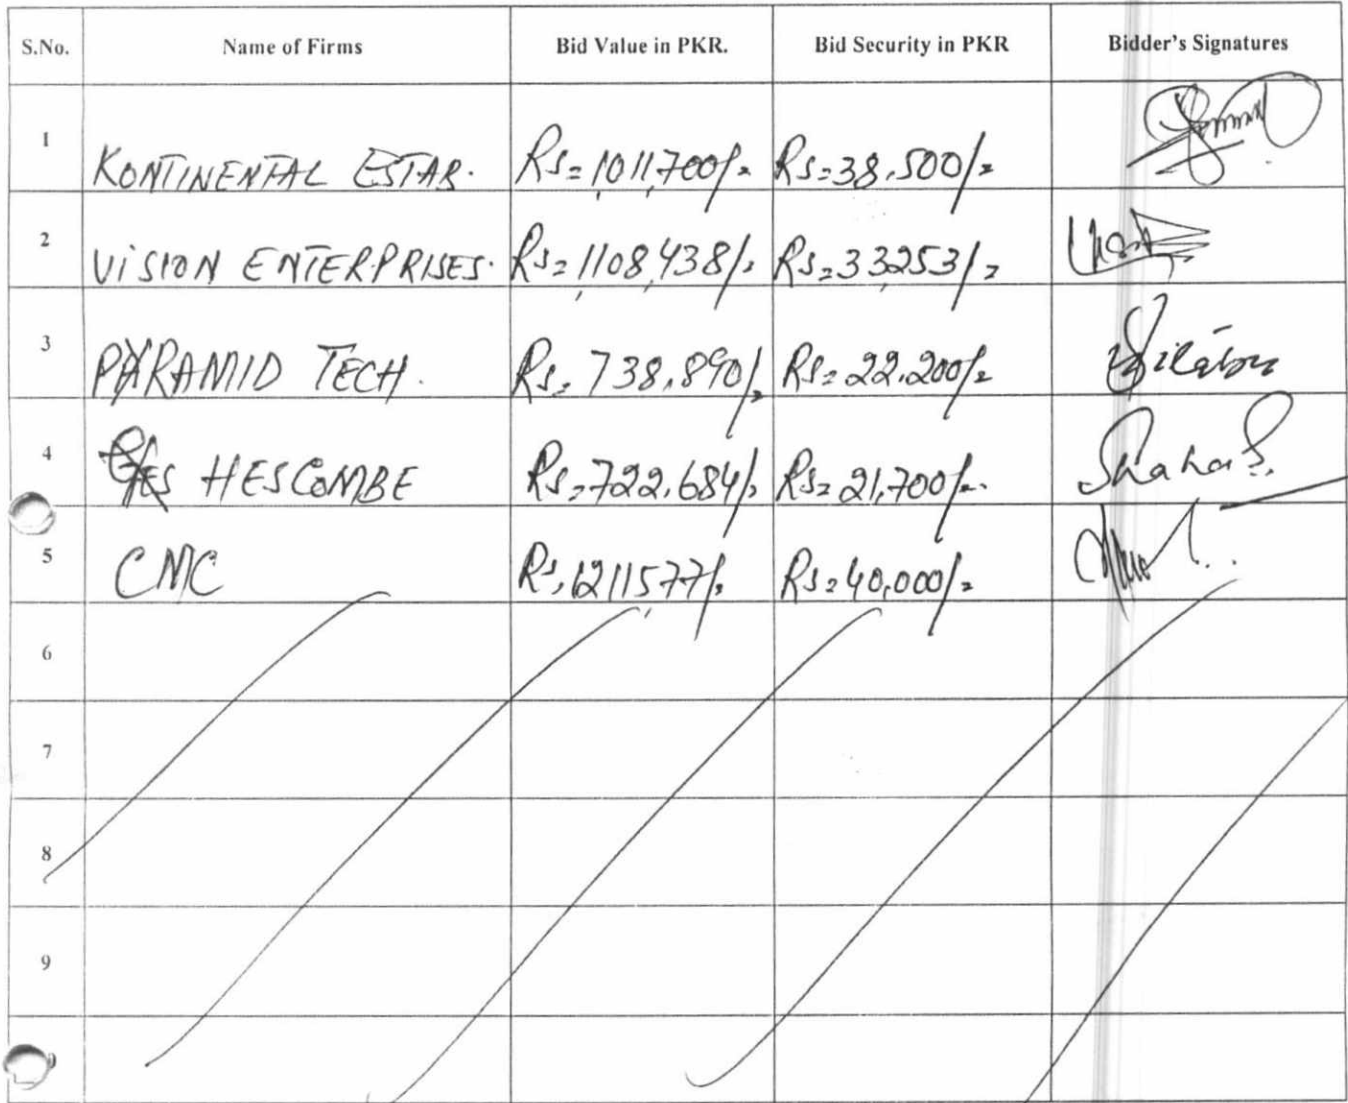 S.No. Name of Firms Bid Value in PKR. Bid Security in PKR Bidder's Signatures
1 KONTINENTAL ESTAB. Rs=1,011,700/= Rs=38,500/=
2 VISION ENTERPRISES. Rs=1,108,438/= Rs=33,253/=
3 PYRAMID TECH. Rs= 738,890/= Rs=22,200/=
4 HESCOMBE Rs=722,684/= Rs=21,700/=
5 CMC Rs=1211,577/= Rs=40,000/=
6
7
8
9